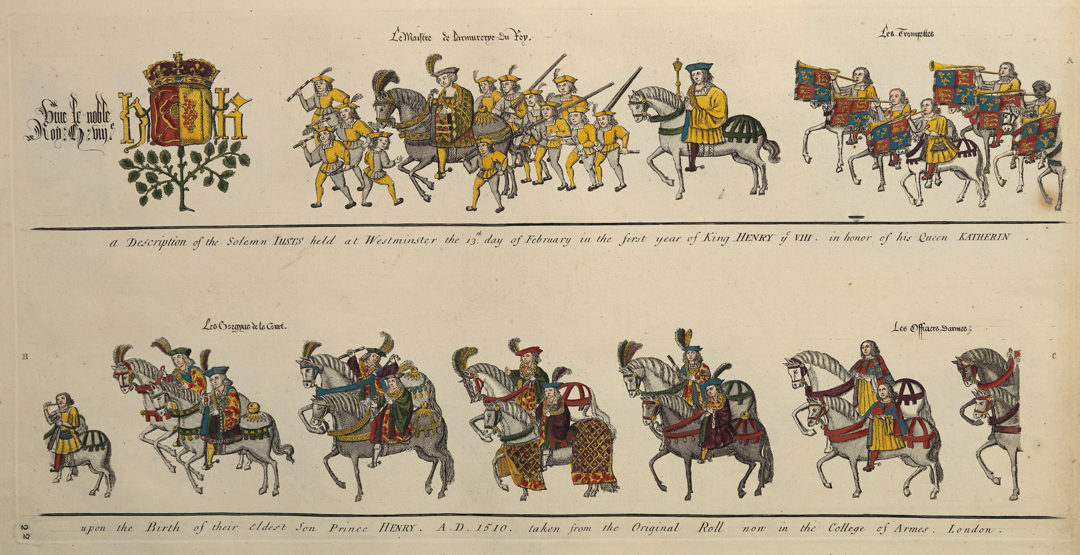 Le Maistre de Larmurerye du Roy.
Les Trompettes
A
Vive le noble
Roy: H: viij.
a Description of the Solemn IUSTS held at Westminster the 13.th day of February in the first year of King HENRY ye VIII. in honor of his Queen KATHERIN.
B
Les Gorgyas de la Court.
Les Officiers Darmes;
C
upon the Birth of their eldest Son Prince HENRY. A.D. 1510. taken from the Original Roll now in the College of Armes, London.